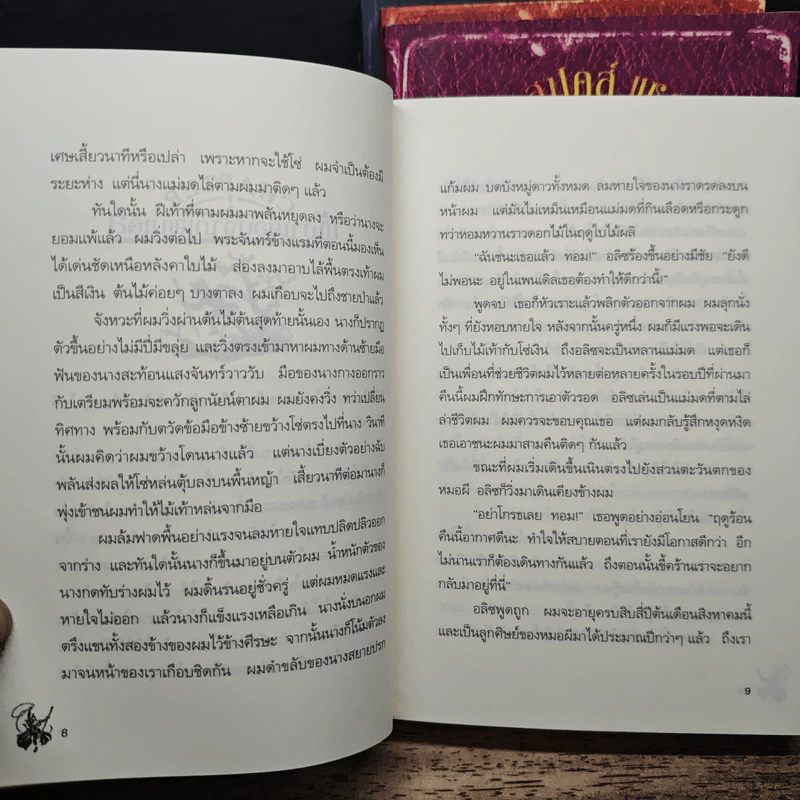 สปุคส์ แระ
เศษเสี้ยวนาทีหรือเปล่า เพราะหากจะใช้โซ่ ผมจำเป็นต้องมี
ระยะห่าง แต่นี่นางแม่มดไล่ตามผมมาติดๆ แล้ว
ทันใดนั้น ฝีเท้าที่ตามผมมาพลันหยุดลง หรือว่านางจะ
ยอมแพ้แล้ว ผมวิ่งต่อไป พระจันทร์ข้างแรมที่ตอนนี้มองเห็น
ได้เด่นชัดเหนือหลังคาใบไม้ ส่องลงมาอาบไล้พื้นตรงเท้าผม
เป็นสีเงิน ต้นไม้ค่อยๆ บางตาลง ผมเกือบจะไปถึงชายป่าแล้ว
จังหวะที่ผมวิ่งผ่านต้นไม้ต้นสุดท้ายนั้นเอง นางก็ปรากฏ
ตัวขึ้นอย่างไม่มีปี่มีขลุ่ย และวิ่งตรงเข้ามาหาผมทางด้านซ้ายมือ
ฟันของนางสะท้อนแสงจันทร์วาววับ มือของนางกางออกราว
กับเตรียมพร้อมจะควักลูกนัยน์ตาผม ผมยังคงวิ่ง ทว่าเปลี่ยน
ทิศทาง พร้อมกับตวัดข้อมือข้างซ้ายขว้างโซ่ตรงไปที่นาง วินาที
นั้นผมคิดว่าผมขว้างโดนนางแล้ว แต่นางเบี่ยงตัวอย่างฉับ
พลันส่งผลให้โซ่หล่นตุ้บลงบนพื้นหญ้า เสี้ยวนาทีต่อมานางก็
พุ่งเข้าชนผมทำให้ไม้เท้าหล่นจากมือ
ผมล้มฟาดพื้นอย่างแรงจนลมหายใจแทบปลิดปลิวออก
จากร่าง และทันใดนั้นนางก็ขึ้นมาอยู่บนตัวผม น้ำหนักตัวของ
นางกดทับร่างผมไว้ ผมดิ้นรนอยู่ชั่วครู่ แต่ผมหมดแรงและ
หายใจไม่ออก แล้วนางก็แข็งแรงเหลือเกิน นางนั่งบนอกผม
ตรึงแขนทั้งสองข้างของผมไว้ข้างศีรษะ จากนั้นนางก็โน้มตัวลง
มาจนหน้าของเราเกือบชิดกัน ผมดำขลับของนางสยายปรก
8
แก้มผม บดบังหมู่ดาวทั้งหมด ลมหายใจของนางราดรดลงบน
หน้าผม แต่มันไม่เหม็นเหมือนแม่มดที่กินเลือดหรือกระดูก
ทว่าหอมหวานราวดอกไม้ในฤดูใบไม้ผลิ
"ฉันชนะเธอแล้ว ทอม!" อลิซร้องขึ้นอย่างมีชัย "ยังดี
ไม่พอนะ อยู่ในเพนเดิลเธอต้องทำให้ดีกว่านี้!"
พูดจบ เธอก็หัวเราะแล้วพลิกตัวออกจากผม ผมลุกนั่ง
ทั้งๆ ที่ยังหอบหายใจ หลังจากนั้นครู่หนึ่ง ผมก็มีแรงพอจะเดิน
ไปเก็บไม้เท้ากับโซ่เงิน ถึงอลิซจะเป็นหลานแม่มด แต่เธอก็
เป็นเพื่อนที่ช่วยชีวิตผมไว้หลายต่อหลายครั้งในรอบปีที่ผ่านมา
คืนนี้ผมฝึกทักษะการเอาตัวรอด อลิซเล่นเป็นแม่มดที่ตามไล่
ล่าชีวิตผม ผมควรจะขอบคุณเธอ แต่ผมกลับรู้สึกหงุดหงิด
เธอเอาชนะผมมาสามคืนติดๆ กันแล้ว
ขณะที่ผมเริ่มเดินขึ้นเนินตรงไปยังสวนตะวันตกของ
หมอผี อลิซก็วิ่งมาเดินเคียงข้างผม
"อย่าโกรธเลย ทอม!" เธอพูดอย่างอ่อนโยน "ฤดูร้อน
คืนนี้อากาศดีนะ ทำให้สบายตอนที่เรายังมีโอกาสดีกว่า อีก
ไม่นานเราก็ต้องเดินทางกันแล้ว ถึงตอนนั้นขี้คร้านเราจะอยาก
กลับมาอยู่ที่นี่"
อลิซพูดถูก ผมจะอายุครบสิบสี่ปีต้นเดือนสิงหาคมนี้
และเป็นลูกศิษย์ของหมอผีมาได้ประมาณปีกว่าๆ แล้ว ถึงเรา
9